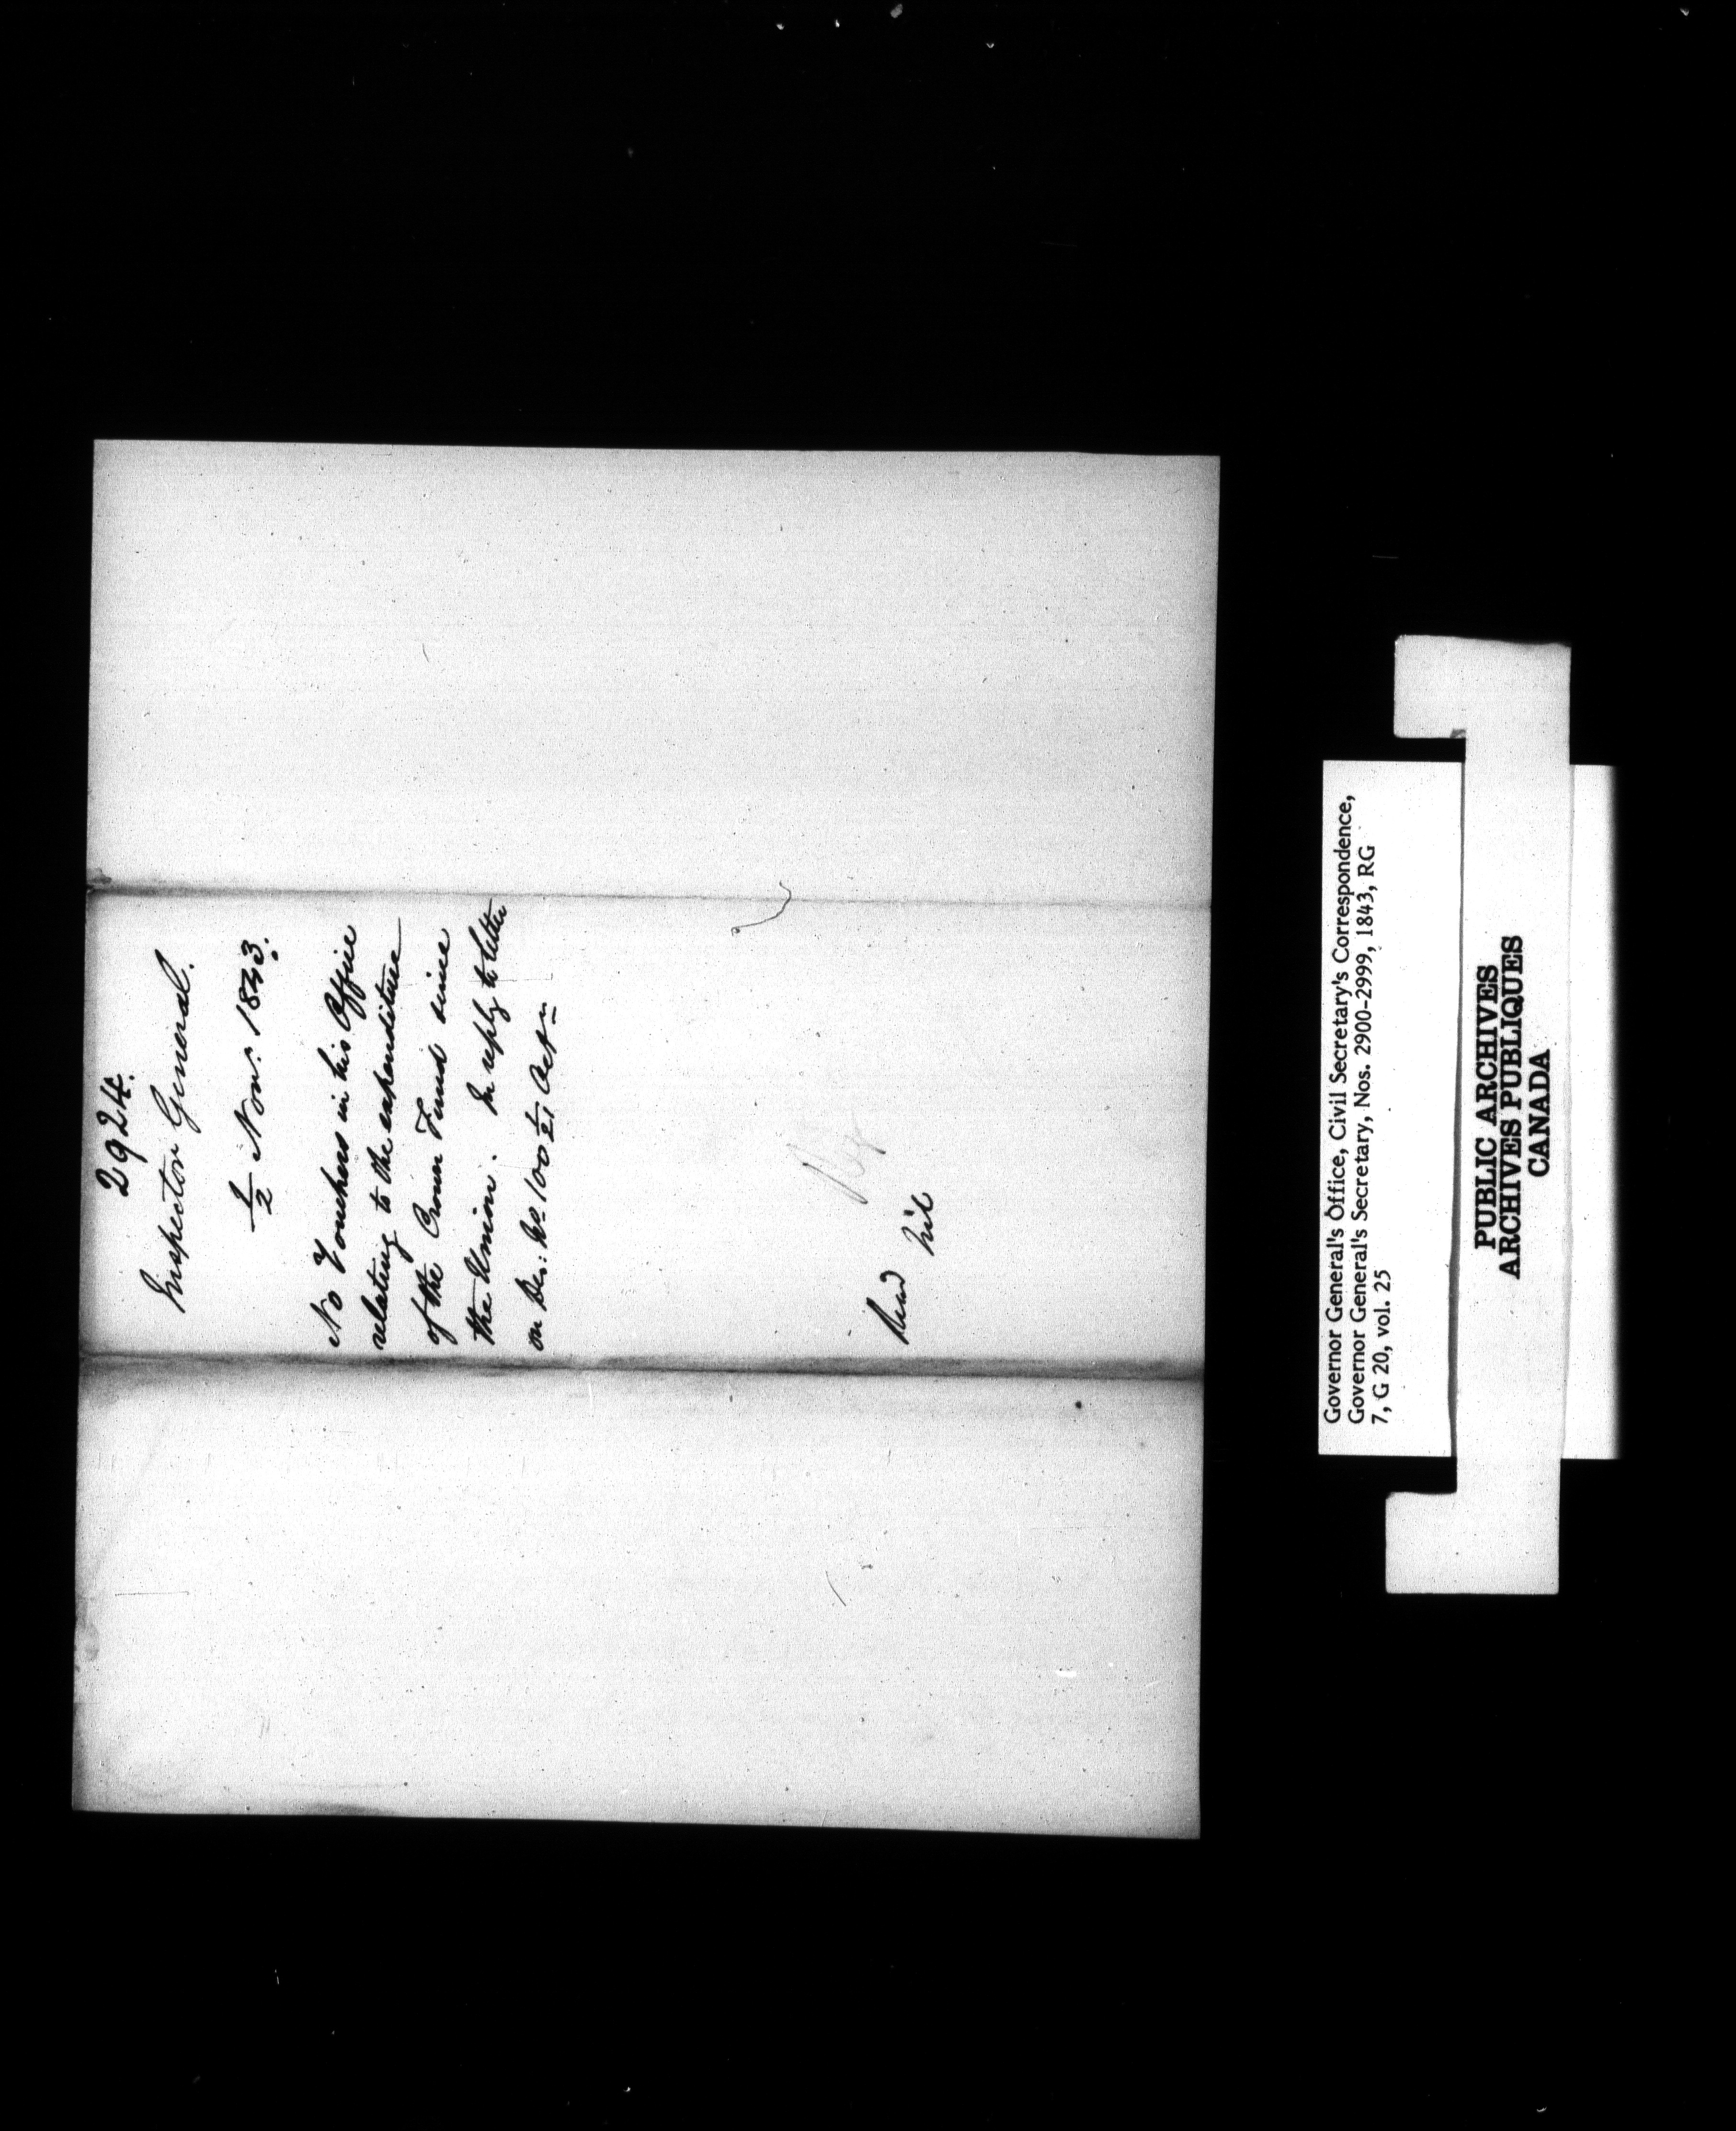 2924.
Inspector General.
1/2 Novr. 1843.
No Vouchers in his Office
relating to the expenditure
of the Crown Fund since
the Union. In reply to letter
on No. 100 1/21
Read
Governor General's Office, Civil Secretary's Correspondence,
Governor General's Secretary, Nos. 2900-2999, 1843, RG
7, G 20, vol. 25
PUBLIC ARCHIVES
ARCHIVES PUBLIQUES
CANADA